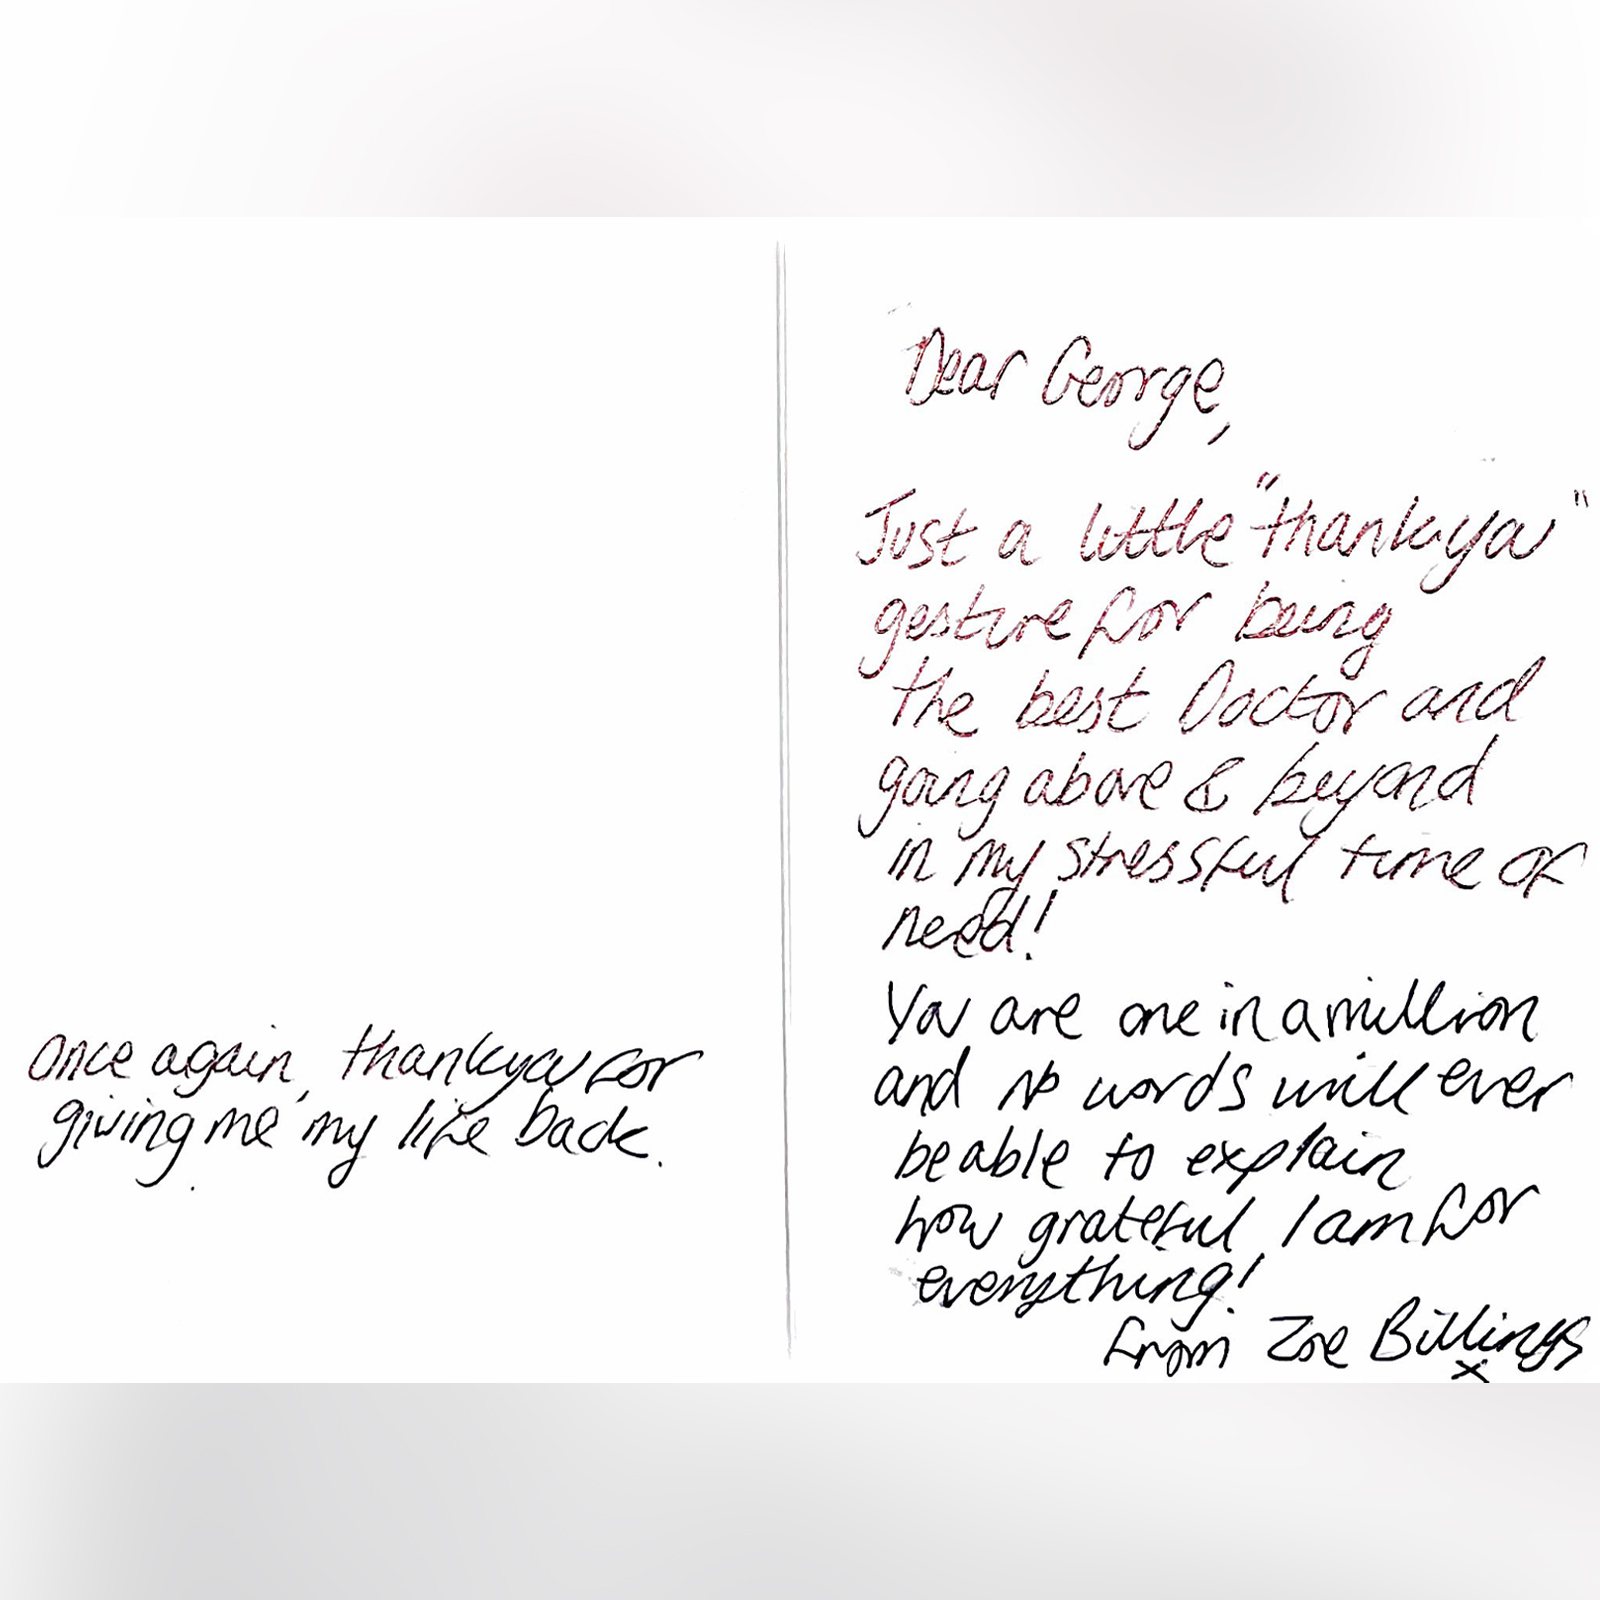 Dear George,
Just a little "thankyou"
gesture for being
the best Doctor and
going above & beyond
in my stressful time of
need!
You are one in a million
and no words will ever
be able to explain
how grateful I am for
everything!
from Zoe Billings
x
Once again, thankyou for
giving me my life back.